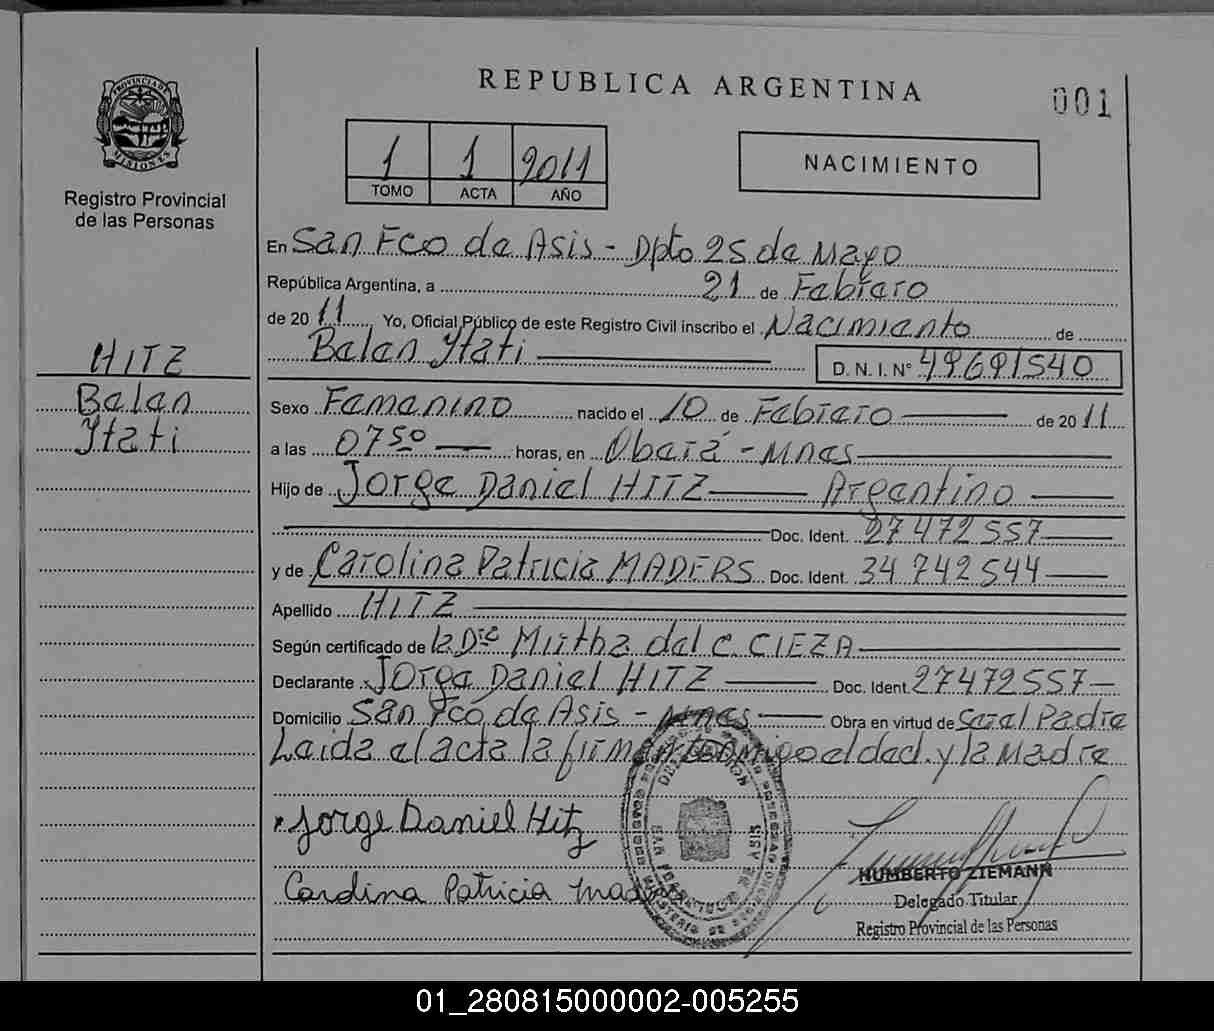 REPUBLICA ARGENTINA
001
PROVINCIA DE MISIONES
Registro Provincial
de las Personas
1 1 2011
TOMO ACTA AÑO
NACIMIENTO
En San Fco de Asis - Dpto 25 de Mayo
República Argentina, a 21 de Febrero
de 2011 Yo, Oficial Público de este Registro Civil inscribo el Nacimiento de
Belen Itati D. N. I. N° 49691540
HITZ
Belen
Itati
Sexo Femenino nacido el 10 de Febrero de 2011
a las 07 50 horas, en Oberá - Mnes
Hijo de Jorge Daniel HITZ Argentino
Doc. Ident. 27 472 557
y de Carolina Patricia MADERS Doc. Ident. 34 742 544
Apellido HITZ
Según certificado de la Dra Mirtha del C. CIEZA
Declarante Jorge Daniel HITZ Doc. Ident. 27472557
Domicilio San Fco de Asis - Mnes Obra en virtud de ser el Padre
Leida el acta la firman conmigo el dec. y la Madre
Jorge Daniel Hitz
Carolina Patricia Maders
DELEGACION
SAN FRANCISCO DE ASIS
MINISTERIO DE GOBIERNO
HUMBERTO ZIEMANN
Delegado Titular
Registro Provincial de las Personas
01_280815000002-005255